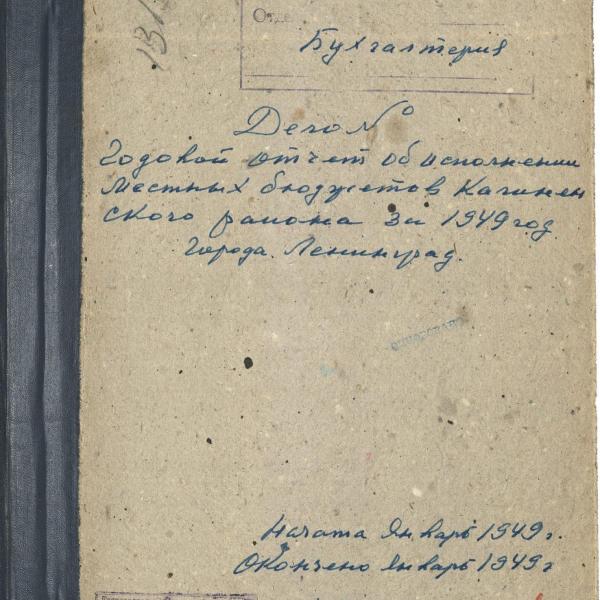 Отде
Бухгалтерия
Дело №
Годовой отчет об исполнении
местных бюджетов Калинен
ского района за 1949 год
города Ленинград.
Начата Январь 1949 г.
Окончено Январь 1949 г